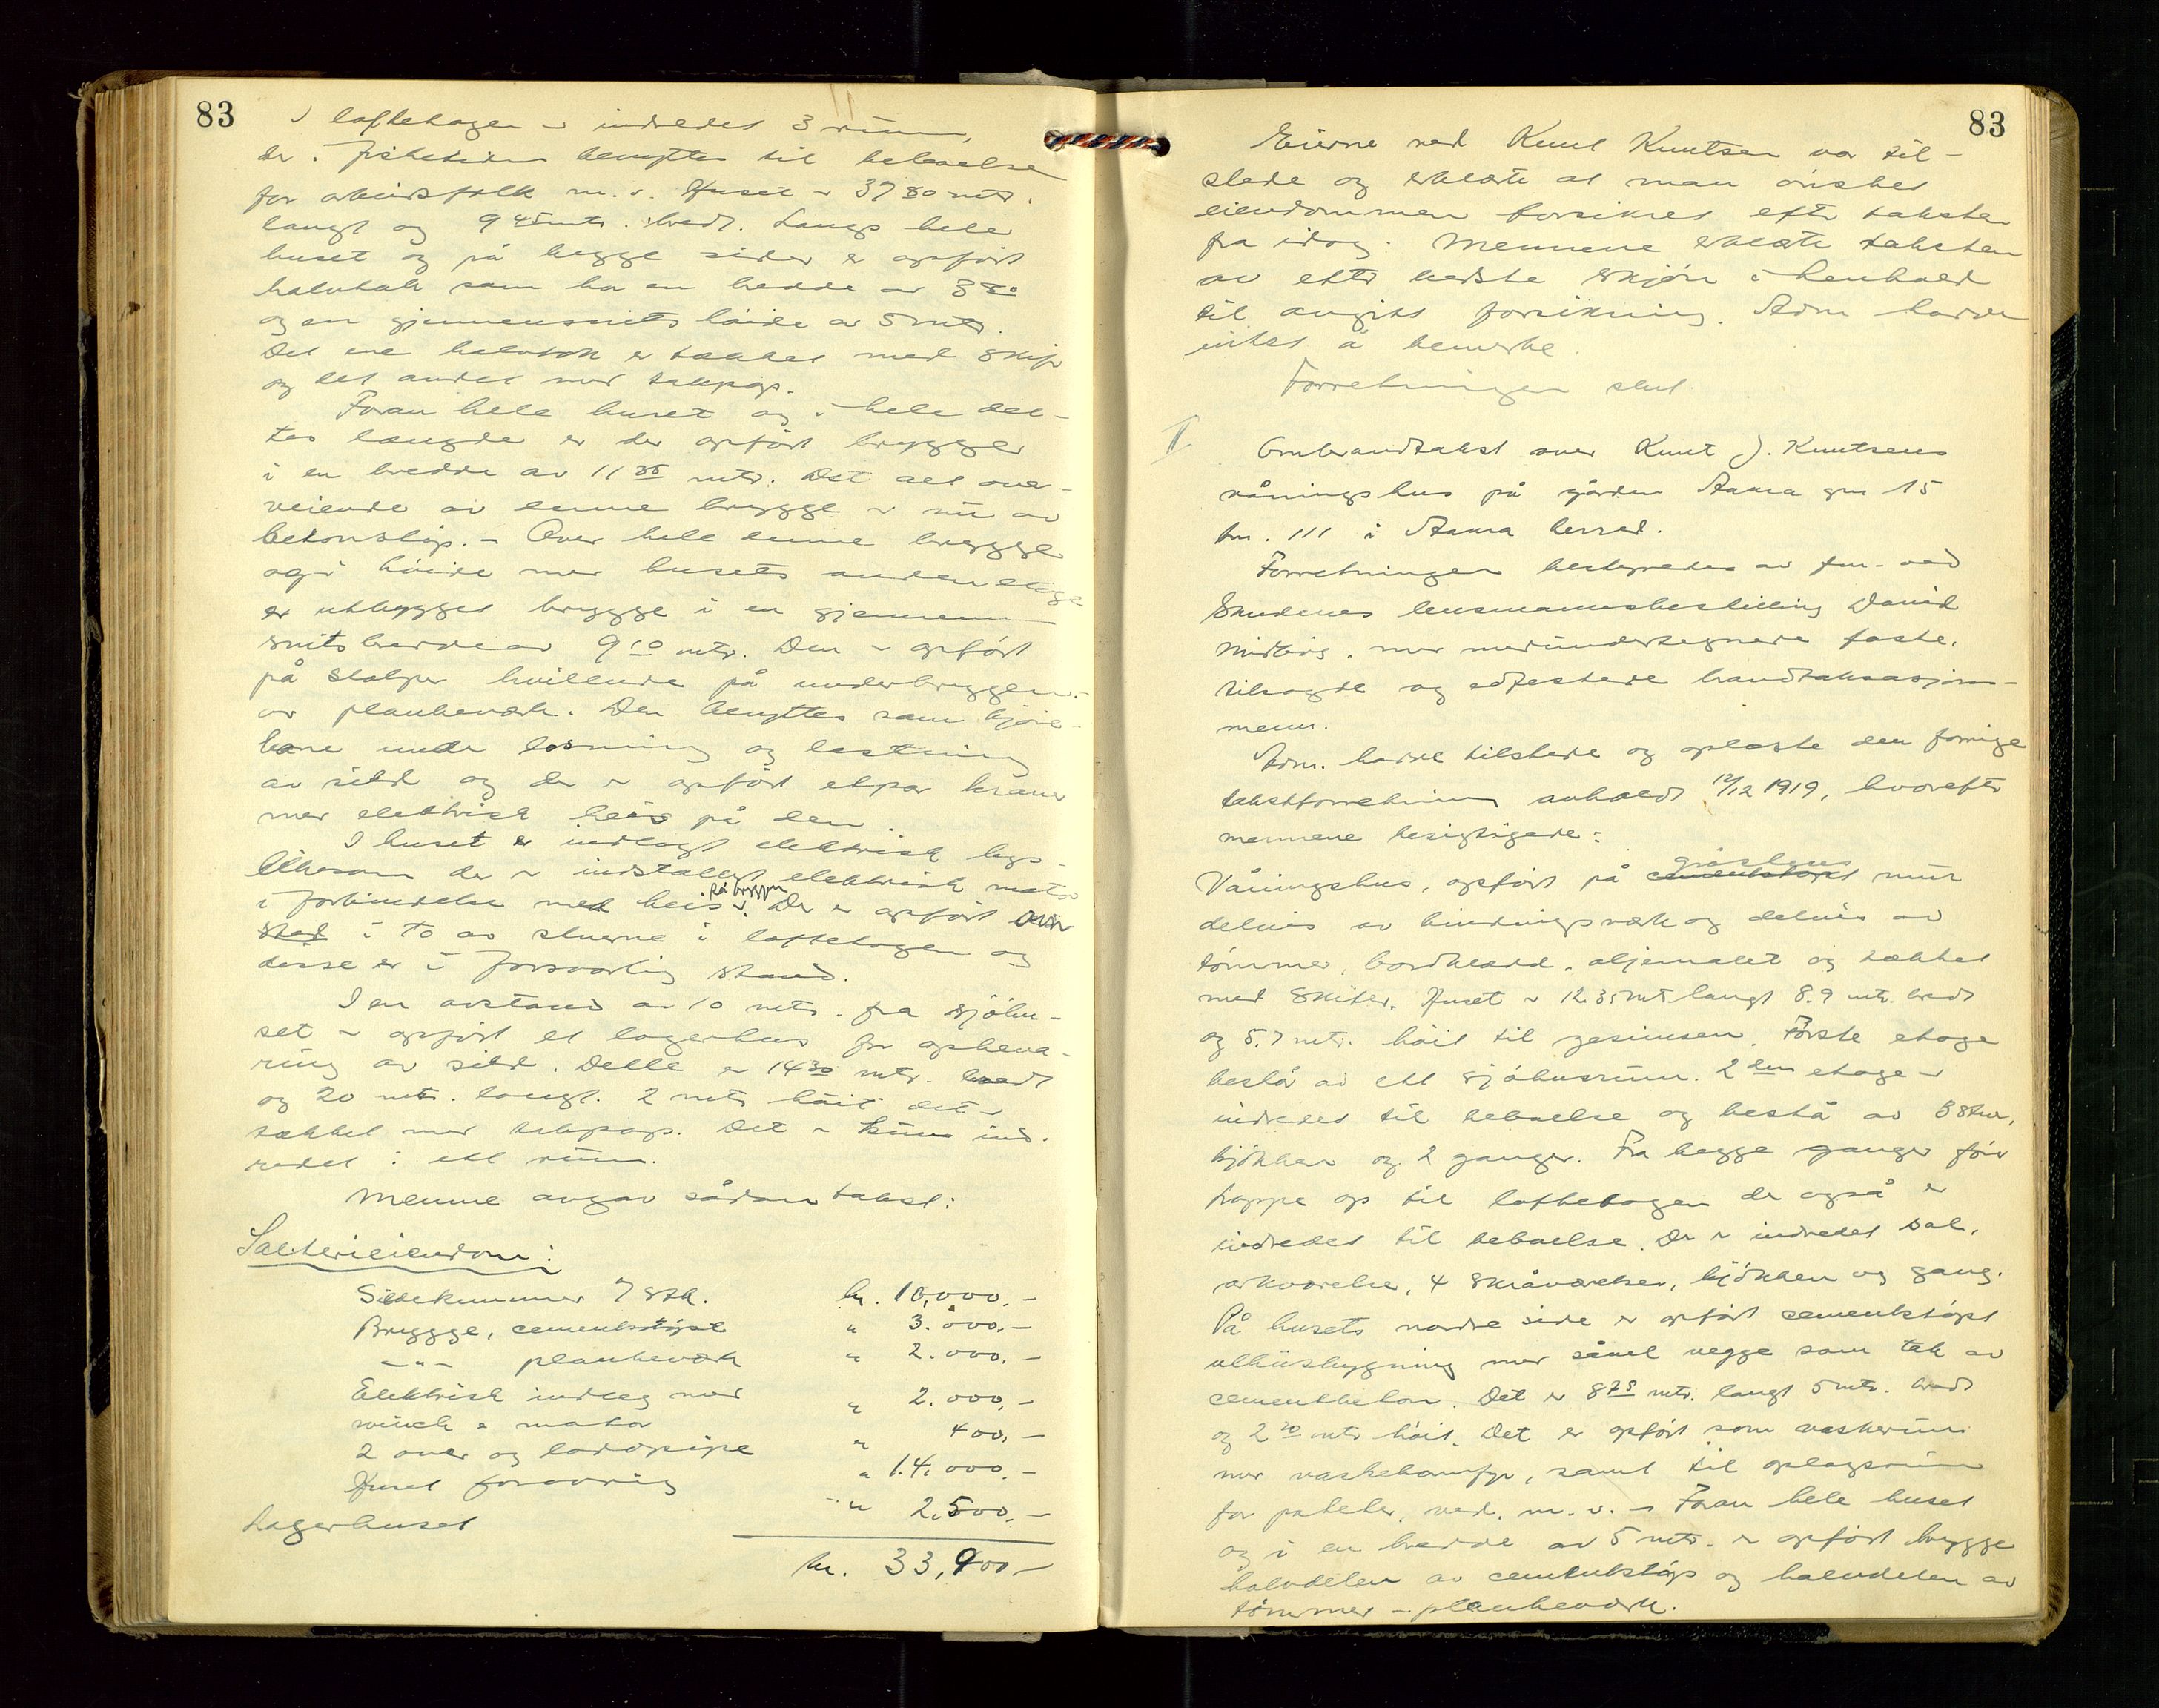 83
I loftetagen er indredet 3 rum,
der i fisketiden benyttes til beboelse
for arbeidsfolk m.v. Huset er 37 80 mtr.
langt og 9 45 mtr. bredt. Langs hele
huset og på begge sider er opført
halvtak som har en bredde av 3 80
og en gjennemsnits høide av 5 mtr.
Det ene halvtak er tækket med skifer
og det andet med takpap.
Foran hele huset og i hele det-
tes længde er der opført brygger
i en bredde av 11 35 mtr. Det alt over-
veiende av denne brygge er nu av
betonstøp. - Over hele denne brygge
og i høide med husets anden etage
er utbygget brygge i en gjennem-
snitsbredde av 9 10 mtr. Den er opført
på stolper hvilende på underbryggen
av plankeværk. Den benyttes som kjøre-
bane under losning og lastning
av sild og der er opført etpar kraner
med elektrisk heis på den.
I huset er indlagt elektrisk lys.
Likesom der er indstallert elektrisk motor
i forbindelse med heis på bryggen. Der er opført ovn
sted i to av stuerne i loftetagen og
disse er i forsvarlig stand.
I en avstand av 10 mtr. fra sjøhu-
set er opført et lagerhus for opbeva-
ring av sild. Dette er 14 30 mtr. bredt
og 20 mtr. langt. 2 mtr høit det er
tækket med takpap. Det er kun ind-
redet i ett rum.
Mennene avgav sådan takst:
Salterieiendom:
Sildekummer 7 stk. kr. 10,000.-
Brygge, cementstøpt " 3.000.-
-"- plankeværk " 2.000.-
Elektrisk indlæg med
winch & motor " 2.000.-
2 ovner og lodd pipe " 400.-
Huset forøvrig " 14.000.-
Lagerhuset " 2,500.-
kr. 33,900.-
83
Eierne ved Knut Knutsen var til-
stede og erklærte at man ønsket
eiendommen forsikret efter taksten
fra idag. Mennene erklærte taksten
av efter bedste skjøn i henhold
til avgitt forsikring. Adm. hadde
intet å bemerke.
Forretningen slut.
II. Ombrandtakst over Knut J. Knutsens
våningshus på gården Aakra gnr 15
bnr. 111 i Aakra herred.
Forretningen bestyredes av fm. ved
Skudenes lensmannsbestilling David
Midbøe, med medundertegnede faste,
tilsagte og edfestede brandtaksasjons-
menn.
Adm. hadde tilstede og oplæste den forrige
takstforretning avholdt 12/12 1919, hvorefter
mennene besigtigede:
Våningshus, opført på gråstens mur
delvis av bindingsverk og delvis av
tømmer, bordklædd, oljemalet og tækket
med skifer. Huset er 12.35 mtr langt 8.9 mtr. bredt
og 5.7 mtr. høit til gesimsen. Første etage
består av ett sjøhusrum. 2den etage er
indredet til beboelse og består av 3 stuer,
kjøkken og 2 ganger. Fra begge ganger fører
trappe op til loftetagen der også er
indredet til beboelse. Der er indredet sal,
arkværelse, 4 skråværelser, kjøkken og gang.
På husets nordre side er opført cementstøpt
uthusbygning med såvel vegge som tak av
cementbeton. Det er 8 75 mtr. langt 5 mtr. bredt
og 2 20 mtr høit. Det er opført som vaskerum
med vaskekomfyr, samt til oplagsrum
for poteter, ved, m.v. - Foran hele huset
og i en bredde av 5 mtr. er opført brygge
halvdelen av cementstøp og halvdelen av
tømmer - plankeværk.